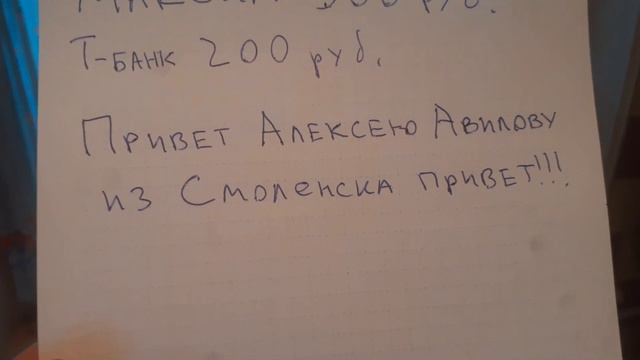 Максим 300 руб.
Т-банк 200 руб.
Привет Алексею Авилову
из Смоленска привет!!!